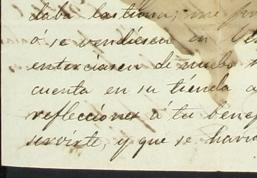 daba
ó se vendiesen en
enterciaren de nuevo
cuenta en su tienda a
reflecciones á tu bene
servirte, y que se haria